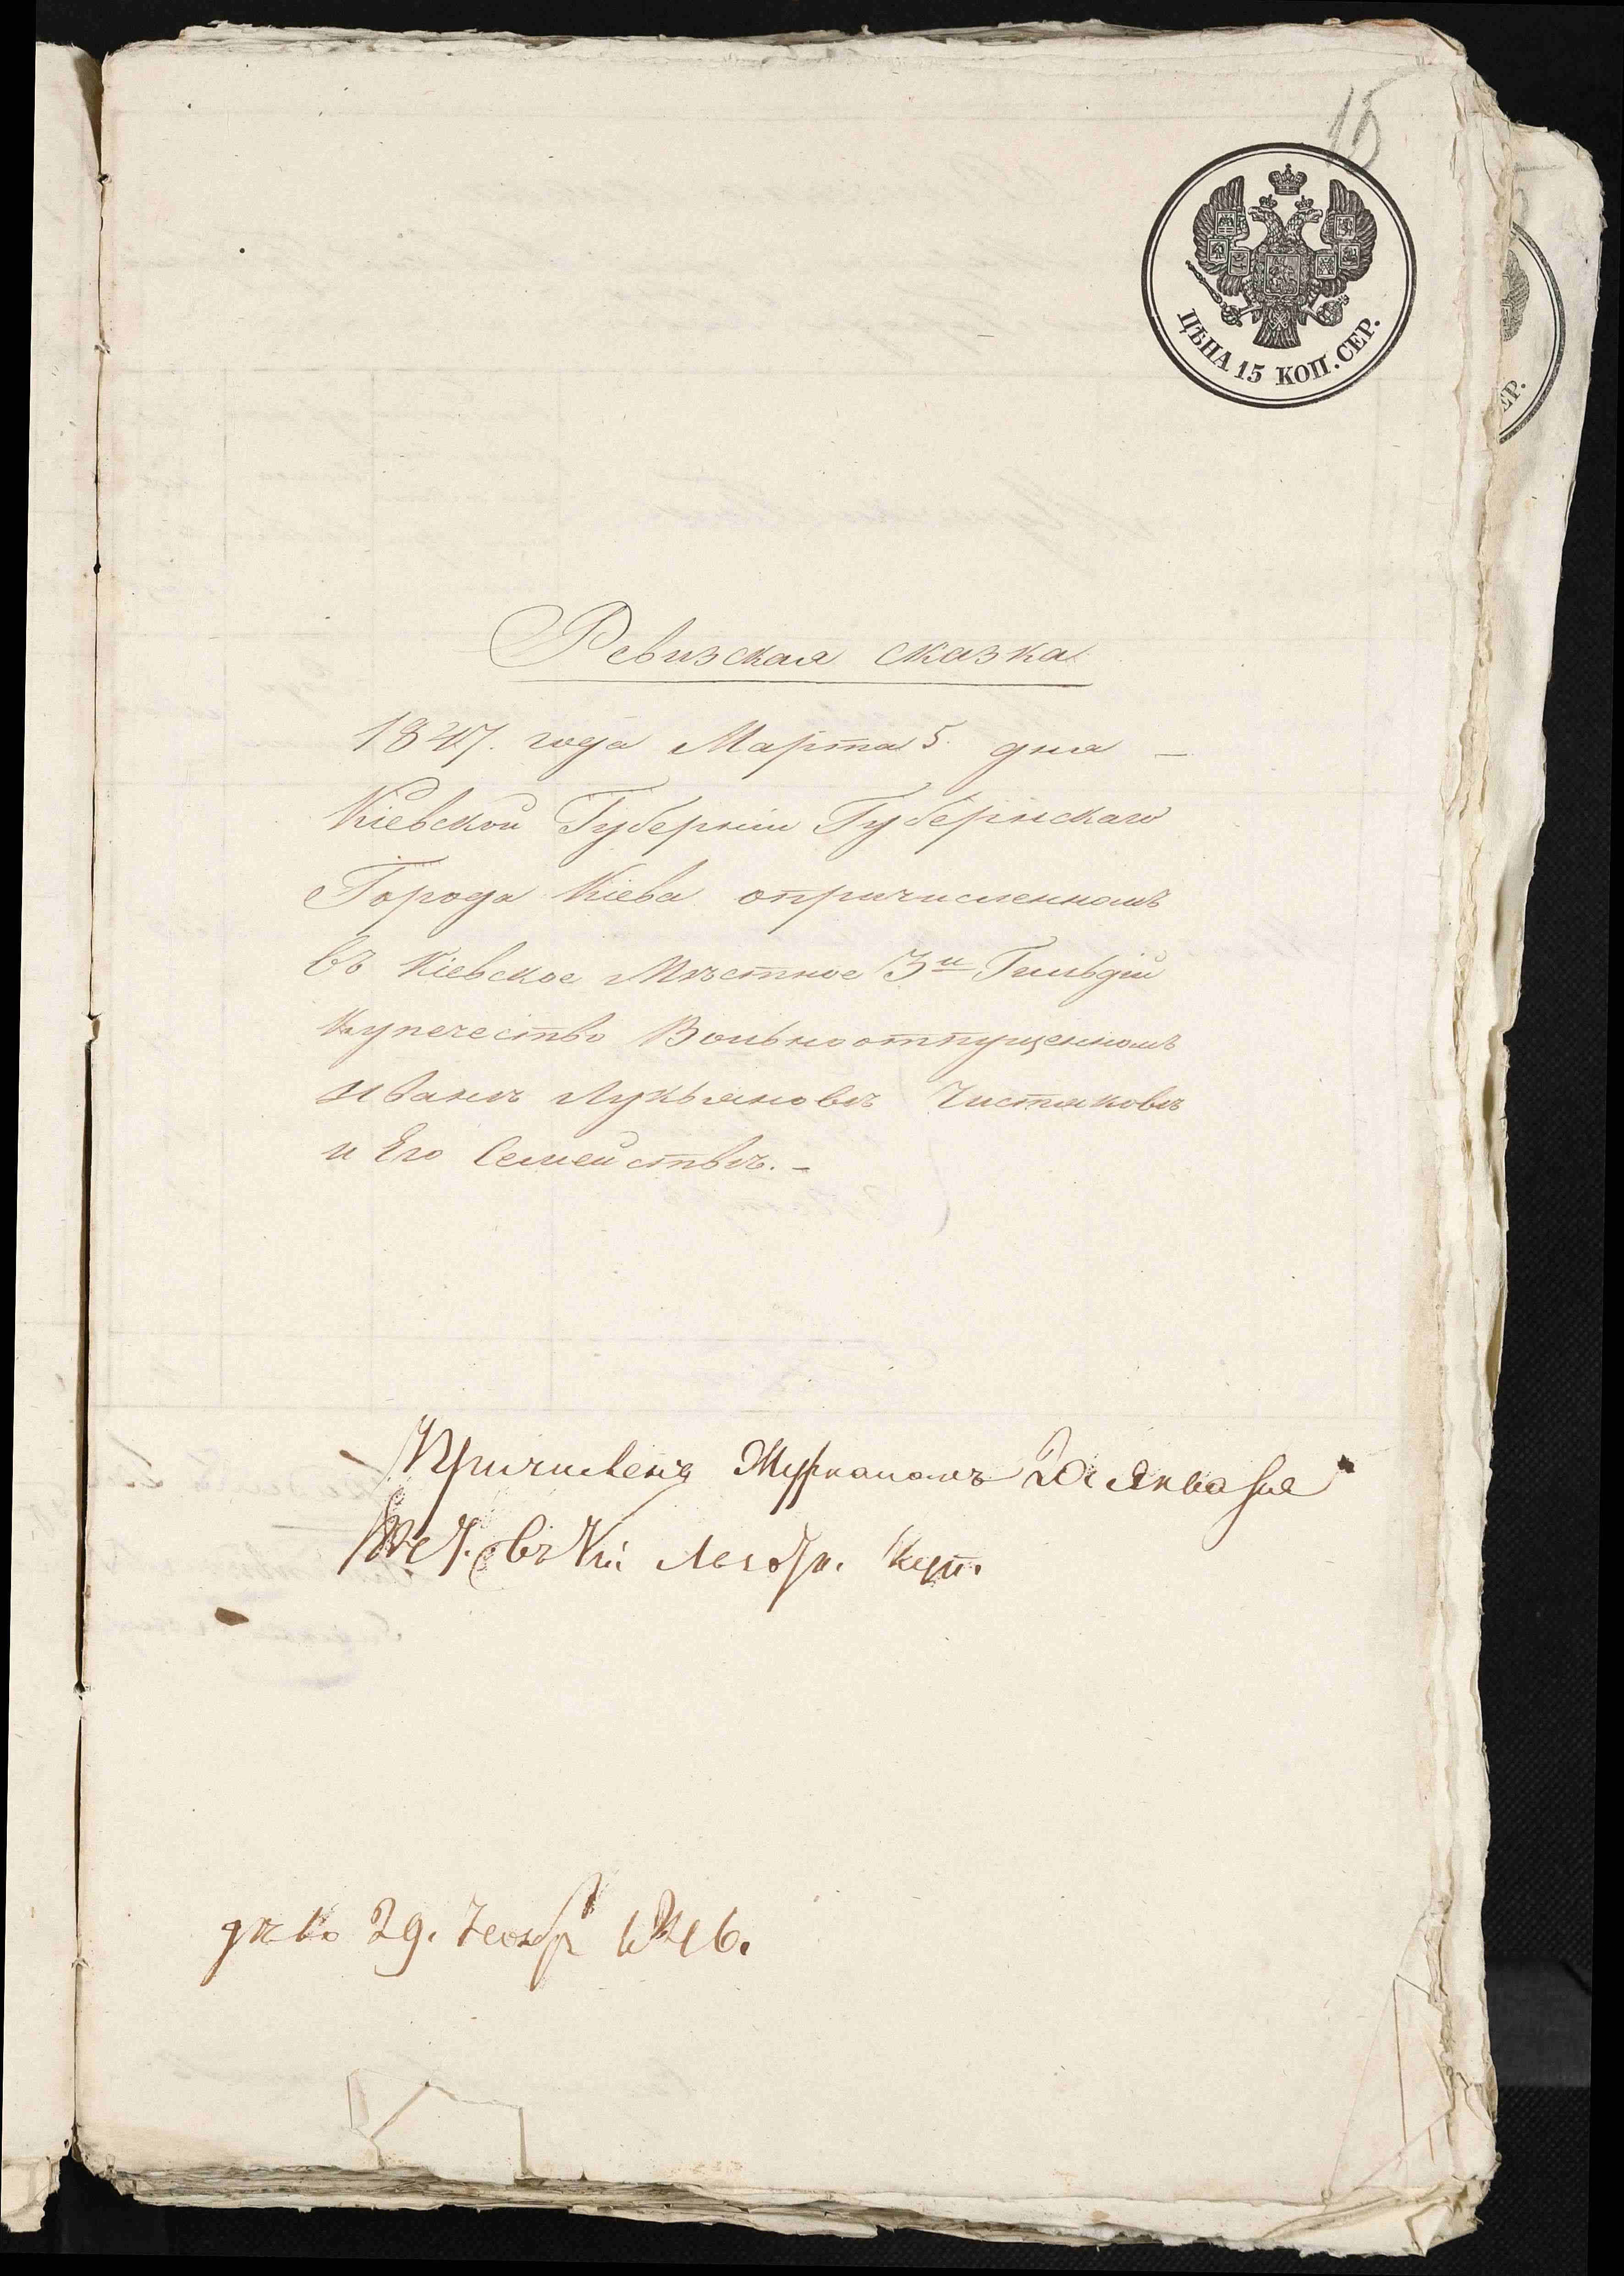 15
ЦѢНА 15 КОП. СЕР.
ЕР.
Ревизская сказка
1847. года Марта 5. дня –
Кіевской Губерніи Губернскаго
Города Кіева опричисленномъ
въ Кіевское Мѣстное 3й Гильдіи
Купечество Вольноотпущенномъ
Иванѣ Лукьяновѣ Чистяковѣ
и Его Семействѣ. –
Причисленъ Журналомъ Января
въ Кіев. куп.
дѣло 29. Ноября 1846.